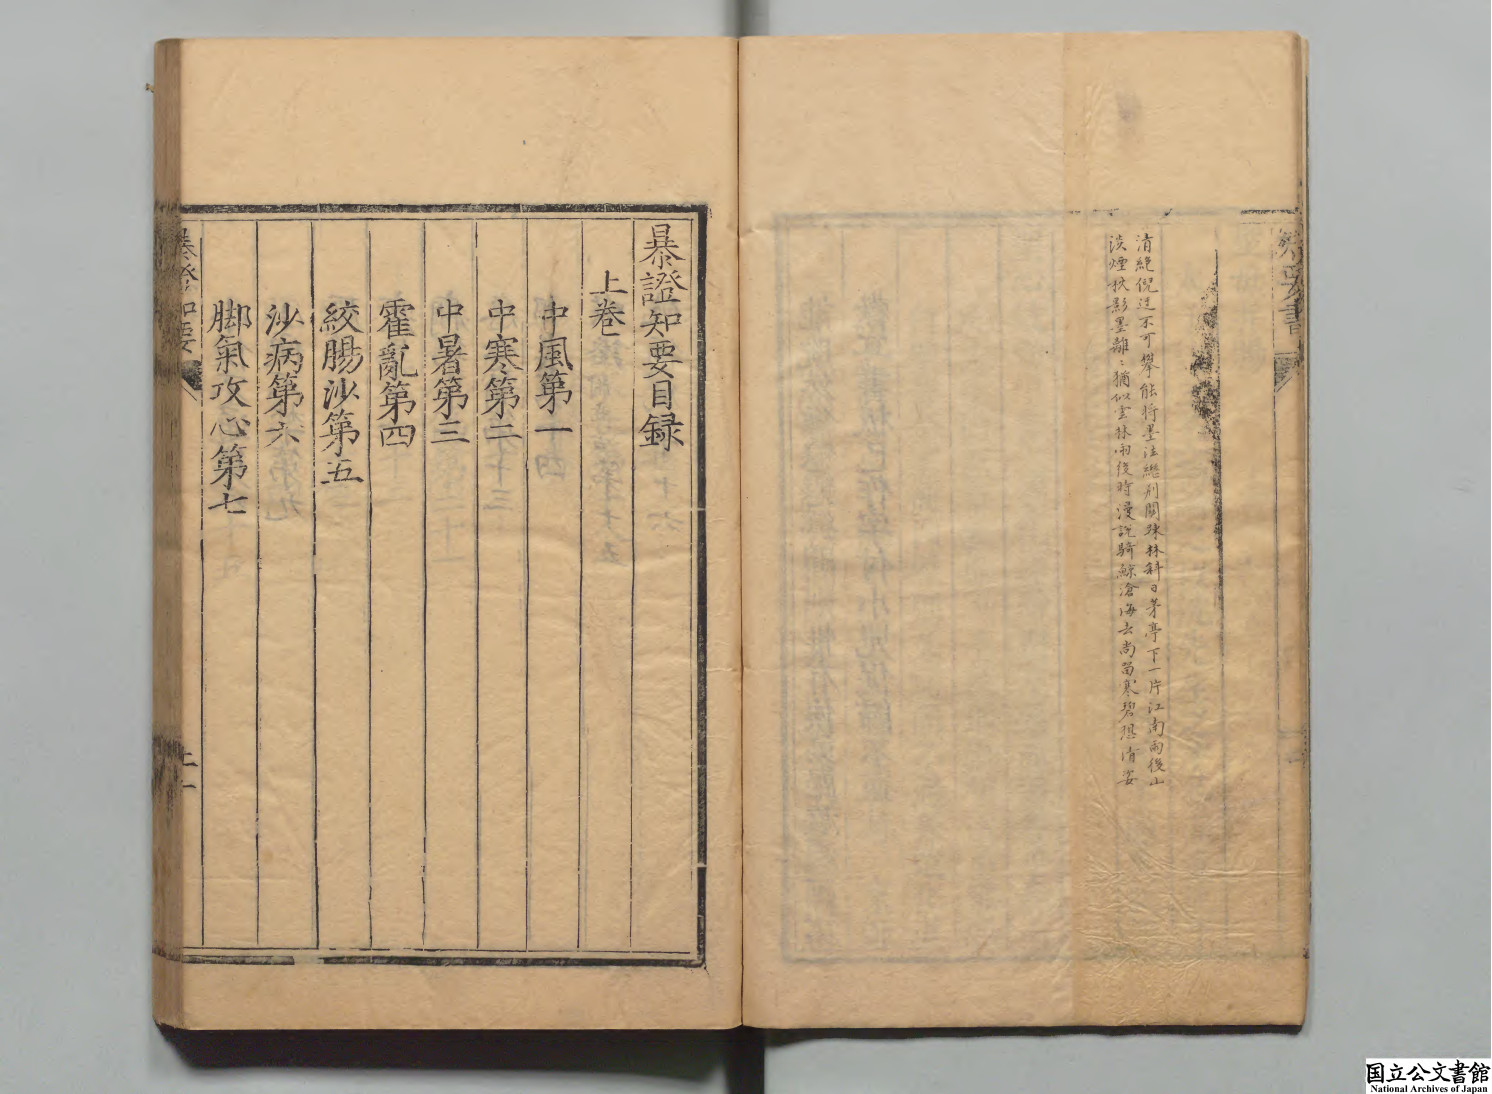 清絶倪迂不可攀能將墨法繼荆關疎林斜日茅亭下一片江南雨後山
淡煙秋影墨離〻猶似雲林雨後時漫說騎鯨滄海去尚留寒碧想清姿
暴證知要目録
上卷
中風第一
中寒第二
中暑第三
霍亂第四
絞腸沙第五
沙病第六
脚氣攻心第七
暴證知要
上一
国立公文書館
National Archives of Japan